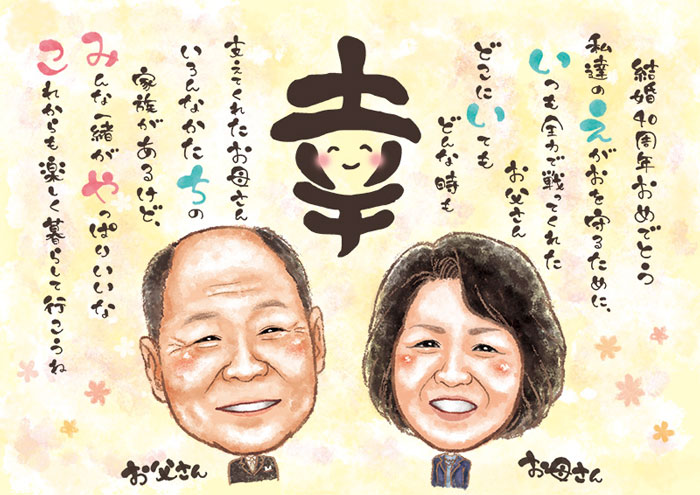 結婚40周年おめでとう
私達のえがおを守るために、
いつも全力で戦ってくれた
お父さん
どこにいても
どんな時も
幸
支えてくれたお母さん
いろんなかたちの
家族があるけど、
みんな一緒がやっぱりいいな
これからも楽しく暮らして行こうね
お父さん
お母さん